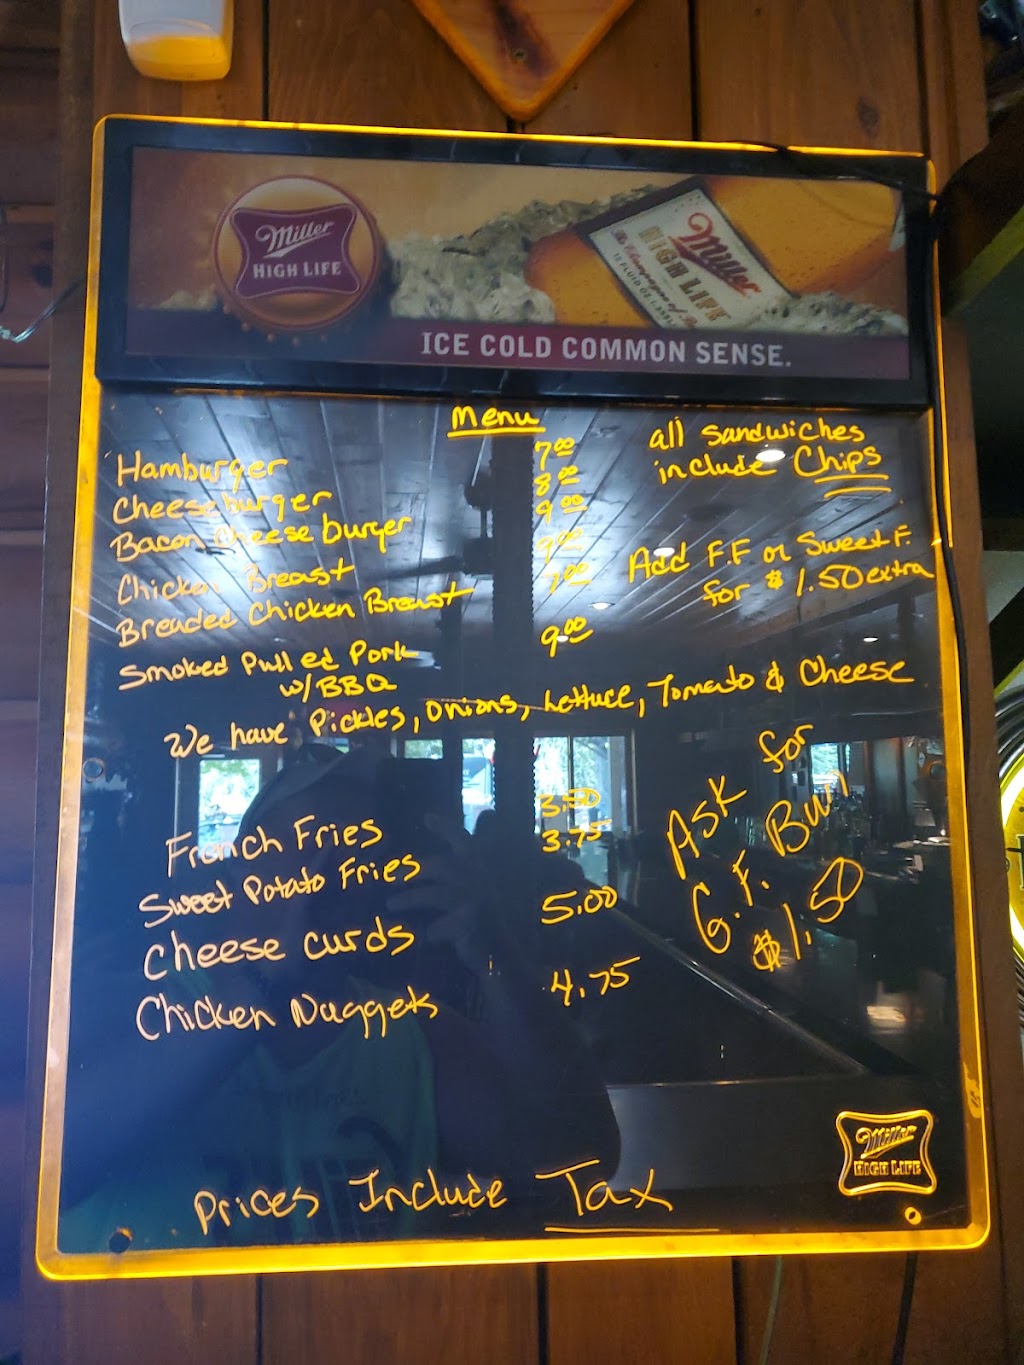 Miller
HIGH LIFE
Miller
HIGH LIFE
The Champagne of
12 FLUID OZ
ICE COLD COMMON SENSE.
Menu
all sandwiches
include Chips
Hamburger 7.00
Cheeseburger 8.00
Bacon Cheese burger 9.00
Chicken Breast 9.00
Breaded Chicken Breast 7.00
Add F.F or Sweet F.
for $1.50 extra
Smoked Pulled Pork 9.00
w/BBQ
We have Pickles, Onions, Lettuce, Tomato & Cheese
French Fries 3.50
Sweet Potato Fries 3.75
Cheese curds 5.00
Chicken Nuggets 4.75
Ask for
G.F. Bun
$1.50
Miller
HIGH LIFE
Prices Include Tax